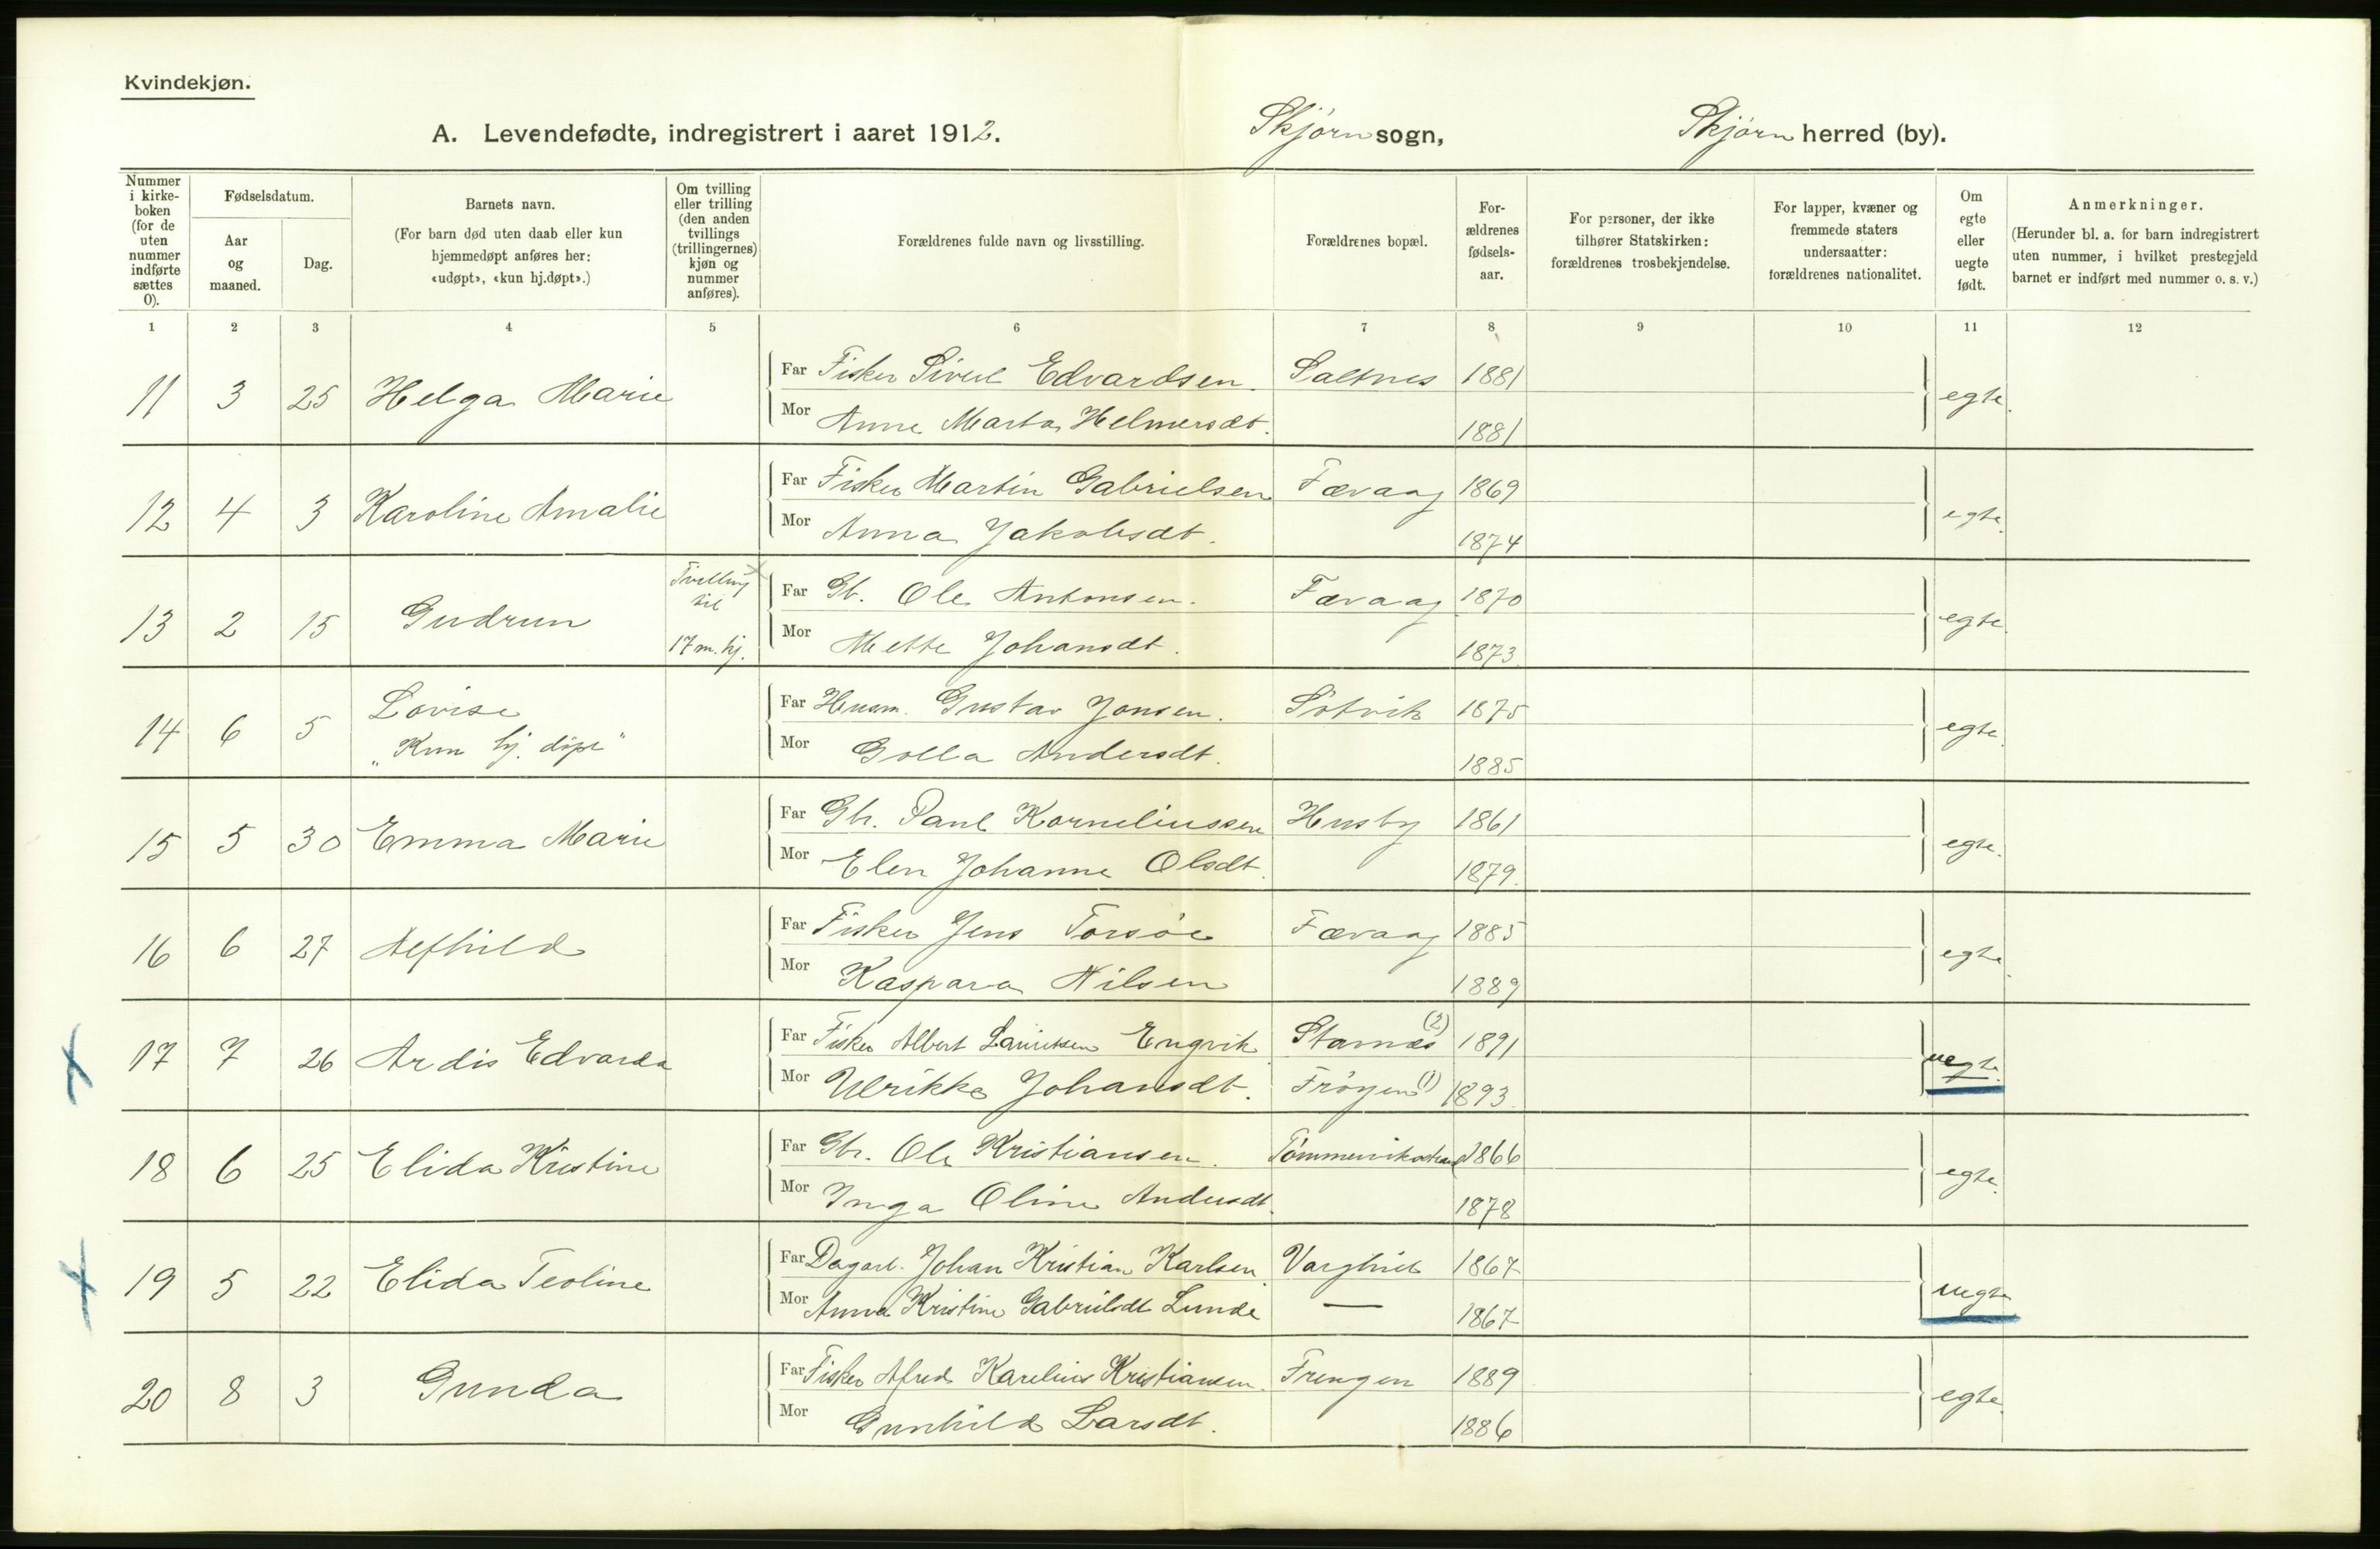 Kvindekjøn.
A. Levendefødte, indregistrert i aaret 1912. Skjørn sogn, Skjørn herred (by).
Nummer i kirke-boken (for de uten nummer indførte sættes 0).
Fødselsdatum.
Aar og maaned.
Dag.
Barnets navn.
(For barn død uten daab eller kun hjemmedøpt anføres her: «udøpt», «kun hj.døpt».)
Om tvilling eller trilling (den anden tvillings (trillingernes) kjøn og nummer anføres).
Forældrenes fulde navn og livsstilling.
Forældrenes bopæl.
For-ældrenes fødsels-aar.
For personer, der ikke tilhører Statskirken: forældrenes trosbekjendelse.
For lapper, kvæner og fremmede staters undersaatter: forældrenes nationalitet.
Om egte eller uegte født.
Anmerkninger.
(Herunder bl. a. for barn indregistrert uten nummer, i hvilket prestegjeld barnet er indført med nummer o. s. v.)
1 2 3 4 5 6 7 8 9 10 11 12
11 3 25 Helga Marie Far Fisker Sivert Edvardsen. Saltnes 1881 egte.
Mor Anne Marta Helmersdt. 1881
12 4 3 Karoline Amalie Far Fisker Martin Gabrielsen Fævaag 1869 egte.
Mor Anna Jakobsdt. 1874
13 2 15 Gudrun Tvilling til 17 m. kj. Far Gb. Ole Antonsen. Fævaag 1870 egte.
Mor Mette Johansdt. 1873
14 6 5 Lovise Far Husm. Gustav Jonsen. Søtvik 1875 egte.
„Kun hj. døpt" Mor Golla Andersdt. 1885
15 5 30 Emma Marie Far Gbr. Paul Korneliussen Husby 1861 egte.
Mor Elen Johanne Olsdt. 1879.
16 6 27 Alfhild Far Fisker Jens Torsøe Fævaag 1885 egte.
Mor Kaspara Nilsen 1889
17 7 26 Ardis Edvarda Far Fisker Albert Lauritsen Engvik Starnæs (2) 1891 uegte.
Mor Ulrikke Johansdt. Frøyen (1) 1893.
18 6 25 Elida Kristine Far Gbr. Ole Kristiansen. Tømmervikstrand 1866 egte.
Mor Inga Oline Andersdt. 1878
19 5 22 Elida Teoline Far Dagarb. Johan Kristian Karlsen Varghiet 1867 uegte
Mor Anna Kristine Gabrielsdt Lunde — 1867
20 8 3 Gunda Far Fisker Alfred Karelius Kristiansen. Frengen 1889 egte.
Mor Gunhild Larsdt. 1886